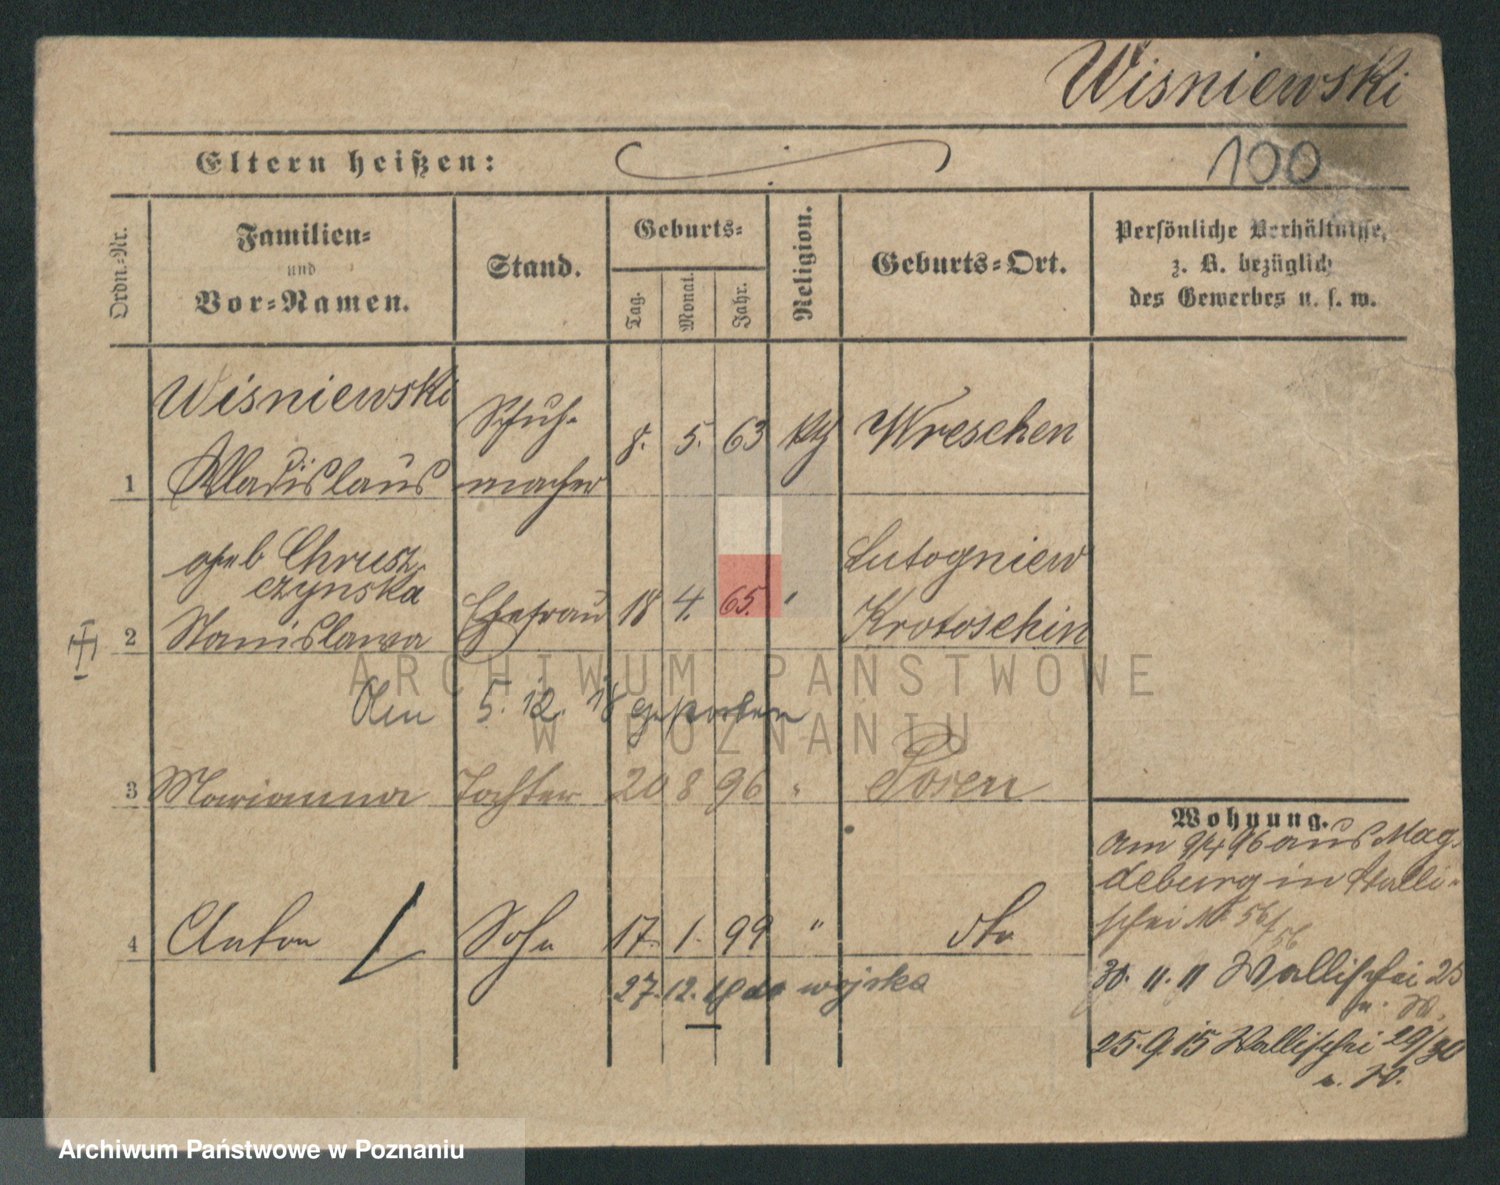 Wisniewski
Eltern heißen:
100
Ordn.-Nr.
Familien-
und
Vor-Namen.
Stand.
Geburts-
Tag.
Monat.
Jahr.
Religion.
Geburts-Ort.
Persönliche Verhältnisse,
z. B. bezüglich
des Gewerbes u. s. w.
Wisniewski Schuh- 8. 5. 63 kth Wreschen
1 Wladislaus macher
geb Chrusz Lutogniew
czynska
2 Stanislawa Ehefrau 18 4. 65. " Krotoschin
Den 5. 12. 18 gestorben
3 Marianna Tochter 20 8 96 " Posen
4 Anton Sohn 17. 1. 99 " dto
27. 12. 18 do wojska
Wohnung.
Am 9/4 96 aus Mag-
deburg in Walli-
schei N. 56/
56
30. 11. 11 Wallischei 25
25. 9. 15 Wallischei 29/30
ARCHIWUM PAŃSTWOWE
W POZNANIU
Archiwum Państwowe w Poznaniu